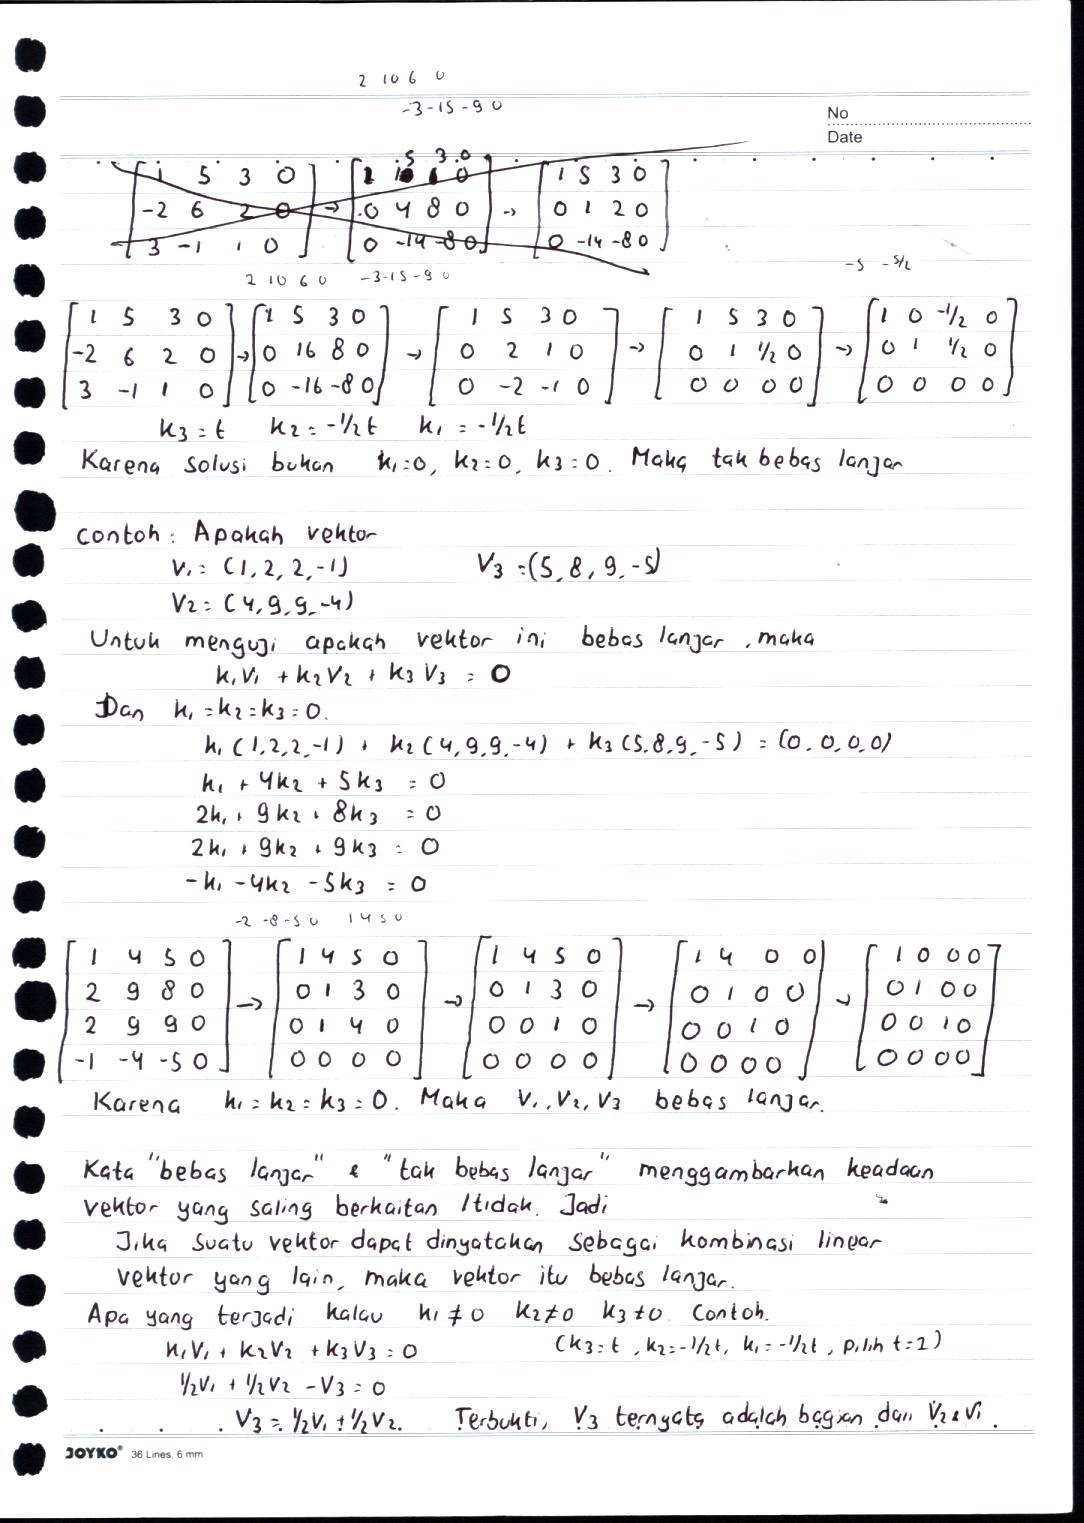 2 10 6 0
-3 -15 -9 0
No
Date
5 3 0
[1 5 3 0] [1 0] [1 5 3 0]
[-2 6 2 0] → [0 4 8 0] → [0 1 2 0]
[3 -1 1 0] [0 -14 -8 0] [0 -14 -8 0]
2 10 6 0 -3 -15 -9 0 -5 -5/2
[1 5 3 0] [1 5 3 0] [1 5 3 0] [1 5 3 0] [1 0 -1/2 0]
[-2 6 2 0] → [0 16 8 0] → [0 2 1 0] → [0 1 1/2 0] → [0 1 1/2 0]
[3 -1 1 0] [0 -16 -8 0] [0 -2 -1 0] [0 0 0 0] [0 0 0 0]
k3 = t k2 = -1/2t k1 = -1/2t
Karena solusi bukan k1=0, k2=0, k3=0. Maka tak bebas lanjar
Contoh: Apakah vektor
V1 = (1, 2, 2, -1) V3 = (5, 8, 9, -5)
V2 = (4, 9, 9, -4)
Untuk menguji apakah vektor ini bebas lanjar, maka
k1V1 + k2V2 + k3V3 = 0
Dan k1 = k2 = k3 = 0.
k1(1,2,2,-1) + k2(4,9,9,-4) + k3(5,8,9,-5) = (0,0,0,0)
k1 + 4k2 + 5k3 = 0
2k1 + 9k2 + 8k3 = 0
2k1 + 9k2 + 9k3 = 0
-k1 -4k2 -5k3 = 0
-2 -8 -5 0 1 4 5 0
[1 4 5 0] [1 4 5 0] [1 4 5 0] [1 4 0 0] [1 0 0 0]
[2 9 8 0] → [0 1 3 0] → [0 1 3 0] → [0 1 0 0] → [0 1 0 0]
[2 9 9 0] [0 1 4 0] [0 0 1 0] [0 0 1 0] [0 0 1 0]
[-1 -4 -5 0] [0 0 0 0] [0 0 0 0] [0 0 0 0] [0 0 0 0]
Karena k1 = k2 = k3 = 0. Maka V1, V2, V3 bebas lanjar.
Kata "bebas lanjar" & "tak bebas lanjar" menggambarkan keadaan
vektor yang saling berkaitan / tidak. Jadi
Jika suatu vektor dapat dinyatakan sebagai kombinasi linear
vektor yang lain, maka vektor itu bebas lanjar.
Apa yang terjadi kalau k1 ≠ 0 k2 ≠ 0 k3 ≠ 0. Contoh.
k1V1 + k2V2 + k3V3 = 0 (k3 = t, k2 = -1/2t, k1 = -1/2t, pilih t=1)
1/2V1 + 1/2V2 - V3 = 0
V3 = 1/2V1 + 1/2V2. Terbukti, V3 ternyata adalah bagian dari V2 & V1.
JOYKO® 36 Lines, 6 mm